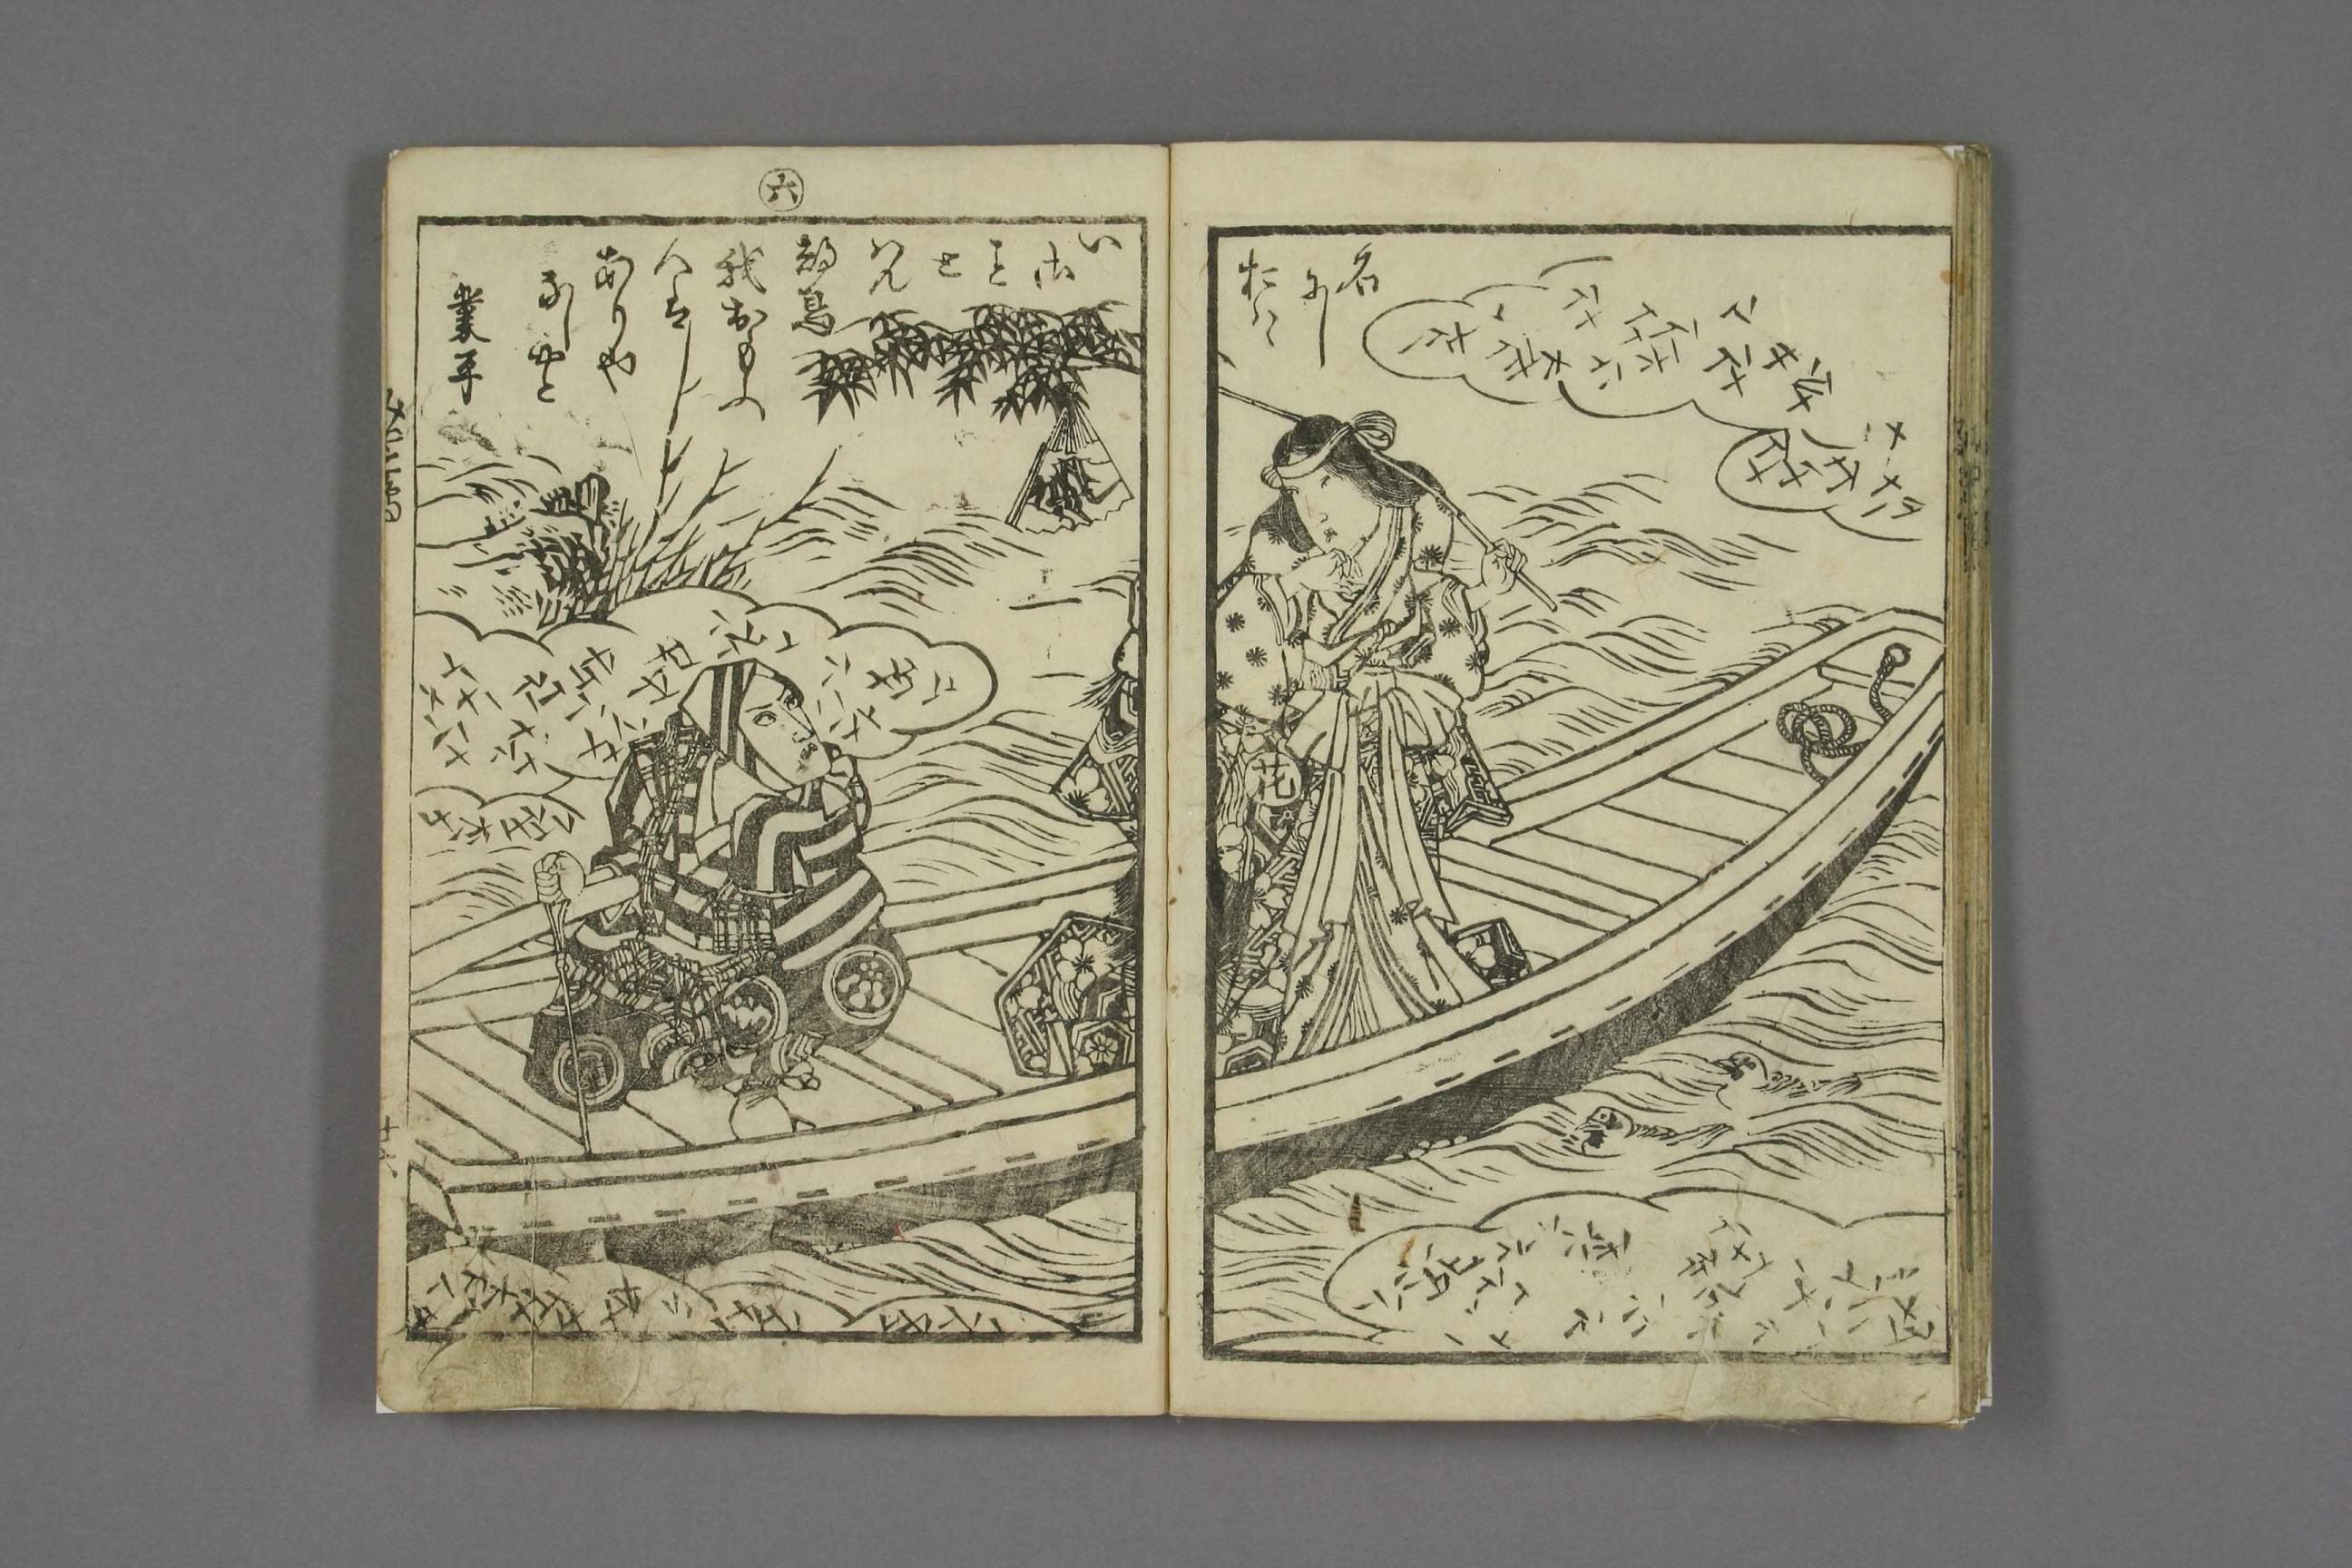 名
にし
おはゝ
い
さ
こと
と
はん
都鳥
我おもふ
人は
ありや
なしやと
業平
六
花